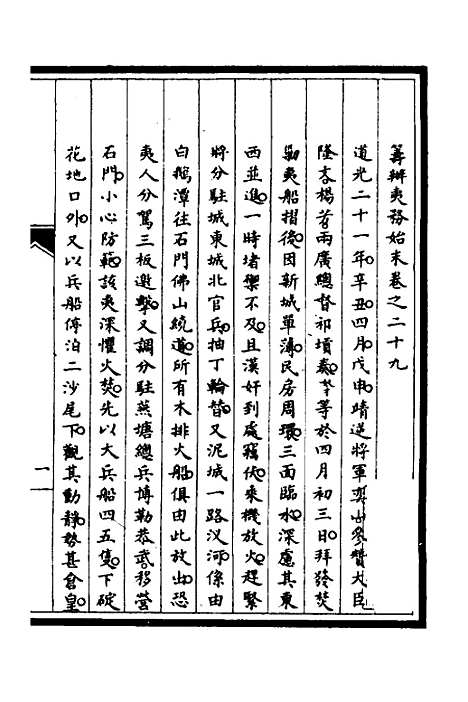 籌辦夷務始末卷之二十九
道光二十一年辛丑四月戊申靖逆將軍奕山參贊大臣
隆文楊芳兩廣總督祁墳奏奴才等於四月初三日拜發焚
勦夷船摺後因新城單薄民房周環三面臨水深慮其東
西並進一時堵禦不及且漢奸到處竊伏乘機放火趕緊
將分駐城東城北官兵抽丁輪替又泥城一路汊河係由
白鵝潭往石門佛山繞道所有木排火船俱由此放出恐
夷人分駕三板邀擊又調分駐燕塘總兵博勒恭武移營
石門小心防範該夷深懼火焚先以大兵船四五隻下碇
花地口外又以兵船停泊二沙尾下觀其動靜勢甚倉皇
一